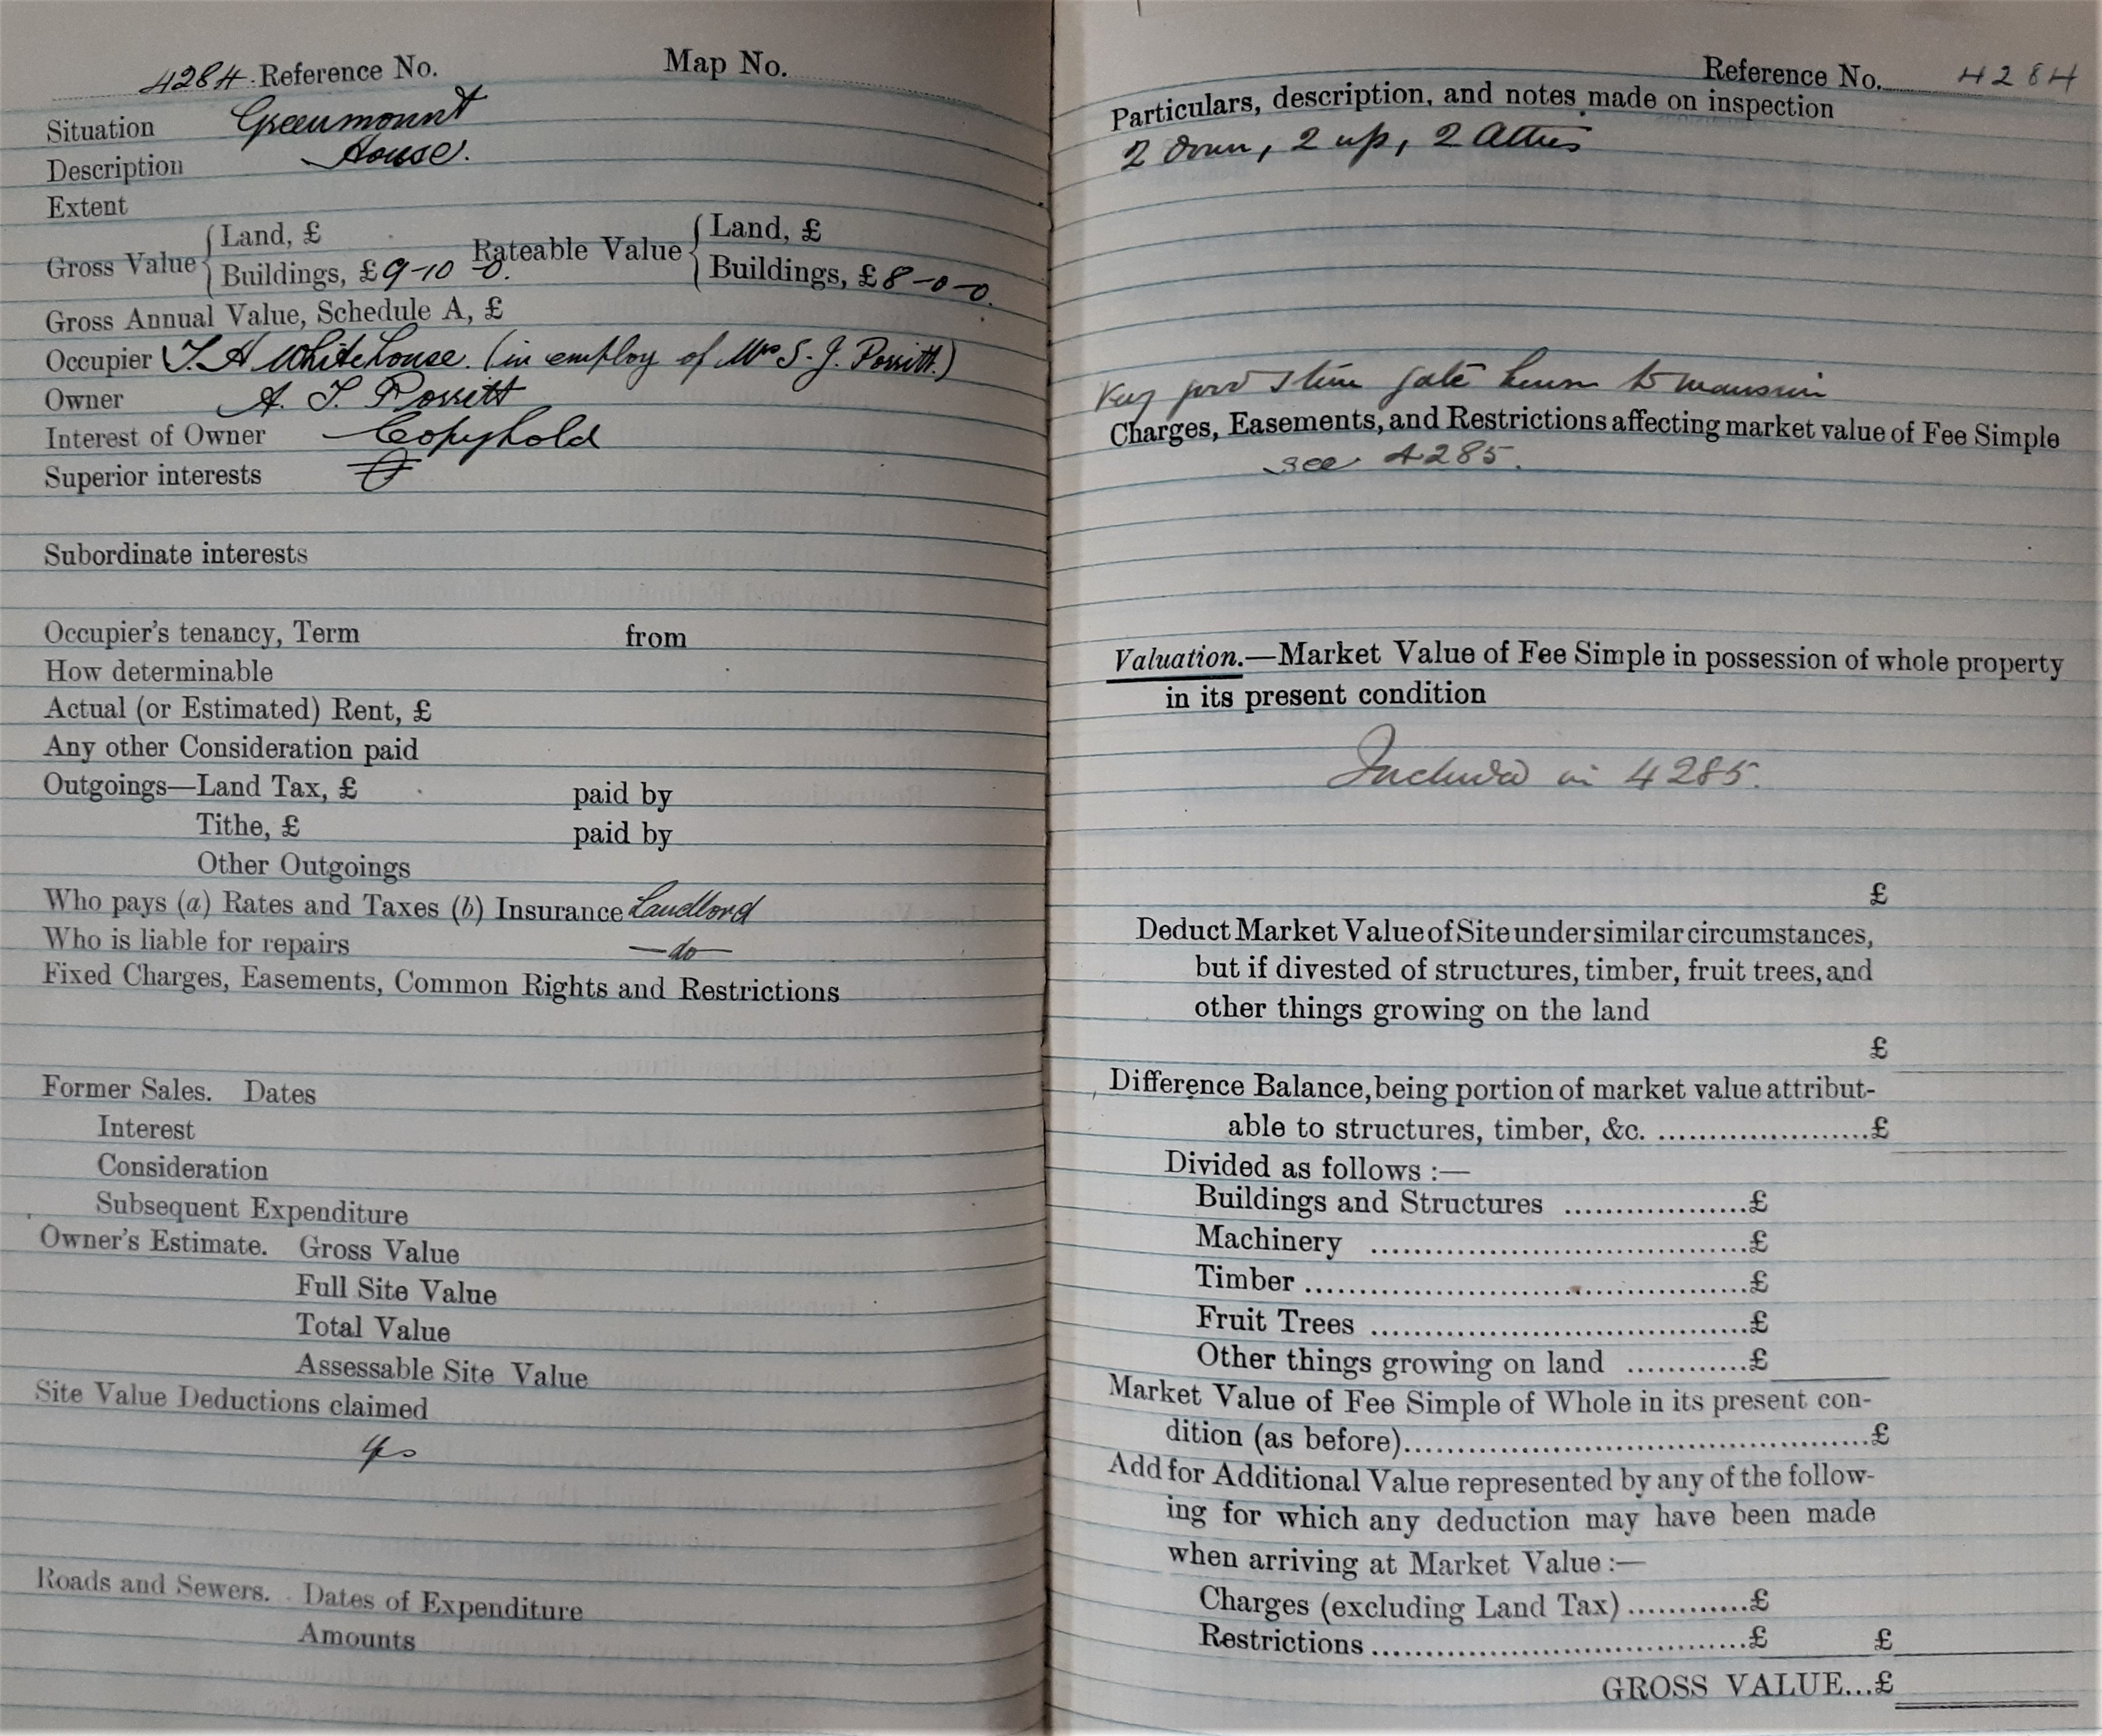 4284 Reference No. Map No.
Situation Greenmount
Description House.
Extent
Gross Value { Land, £ Rateable Value { Land, £
Buildings, £ 9-10-0. Buildings, £ 8-0-0.
Gross Annual Value, Schedule A, £
Occupier T. H Whitehouse. (in employ of Mrs S. J. Porritt.)
Owner A. T. Porritt
Interest of Owner Copyhold
Superior interests
Subordinate interests
Occupier's tenancy, Term from
How determinable
Actual (or Estimated) Rent, £
Any other Consideration paid
Outgoings—Land Tax, £ paid by
Tithe, £ paid by
Other Outgoings
Who pays (a) Rates and Taxes (b) Insurance Landlord
Who is liable for repairs —do—
Fixed Charges, Easements, Common Rights and Restrictions
Former Sales. Dates
Interest
Consideration
Subsequent Expenditure
Owner's Estimate. Gross Value
Full Site Value
Total Value
Assessable Site Value
Site Value Deductions claimed
Yes
Roads and Sewers. Dates of Expenditure
Amounts
Reference No. 4284
Particulars, description, and notes made on inspection
2 down, 2 up, 2 attics
Very good stone gate house to mansion
Charges, Easements, and Restrictions affecting market value of Fee Simple
see 4285.
Valuation.—Market Value of Fee Simple in possession of whole property
in its present condition
Included in 4285.
£
Deduct Market Value of Site under similar circumstances,
but if divested of structures, timber, fruit trees, and
other things growing on the land
£
Difference Balance, being portion of market value attribut-
able to structures, timber, &c. ......................£
Divided as follows :—
Buildings and Structures ..................£
Machinery ....................................£
Timber ..........................................£
Fruit Trees ....................................£
Other things growing on land ............£
Market Value of Fee Simple of Whole in its present con-
dition (as before)..............................................£
Add for Additional Value represented by any of the follow-
ing for which any deduction may have been made
when arriving at Market Value :—
Charges (excluding Land Tax) ............£
Restrictions .....................................£ £
GROSS VALUE...£